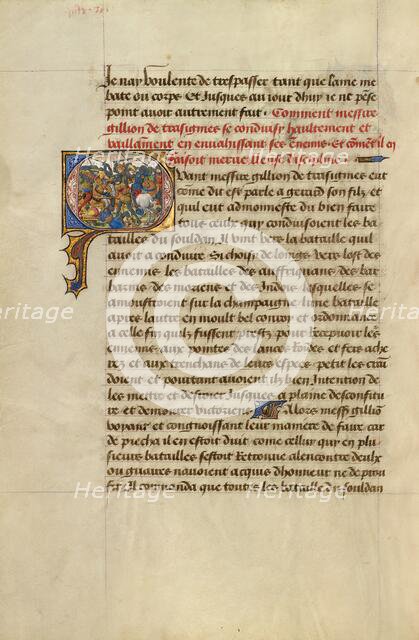 Je nay voulente de trespasser tant que lame me
bate ou corps Et Jusques au iour dhuy ie nē pēse
point avoir autrement fait · Comment messire
gillion de trasignies se conduisy haultement et
vaillāment en envahissant ses Ennemis Et cōmēt il en
faisoit merveilleuse discipline
Quant messire gillion de trasignies eut
cōme dit est parle a gerard son filz et
quil eut admoneste du bien faire
tous ceulx quy conduisoient les ba
tailles du souldan Il vint vers la bataille quil
avoit a conduire Sy choisy de longe vers lost des
ennemis les batailles des auffriquans des bar
barins des moriens et des Indois lesquelles se
amonstroient sur la champaigne lune bataille
apres lautre en moult bel conroy et ordonnance
a celle fin quilz fussent prestz pour recepvoir les
ennemis aux pointes des lances roides et fers ache
rez et aux trenchans de leurs espees petit les crai
doient et pourtant avoient ilz bien Intention de
les mettre et destorer Jusques a plaine desconfitu
re et demourer victoriens Allors messe gillion
voyant et congnoissant leur maniere de faire car
de piecha il en estoit duit come cellui quy en plu
sieurs batailles sestoit Retrouve alencontre deulx
ou guaires navoient acquis dhonneur ne de prou
fit Il commanda que toutes les batailles du souldan
Heritage
Heritage
Heritage
Heritage
Heritage
Heritage